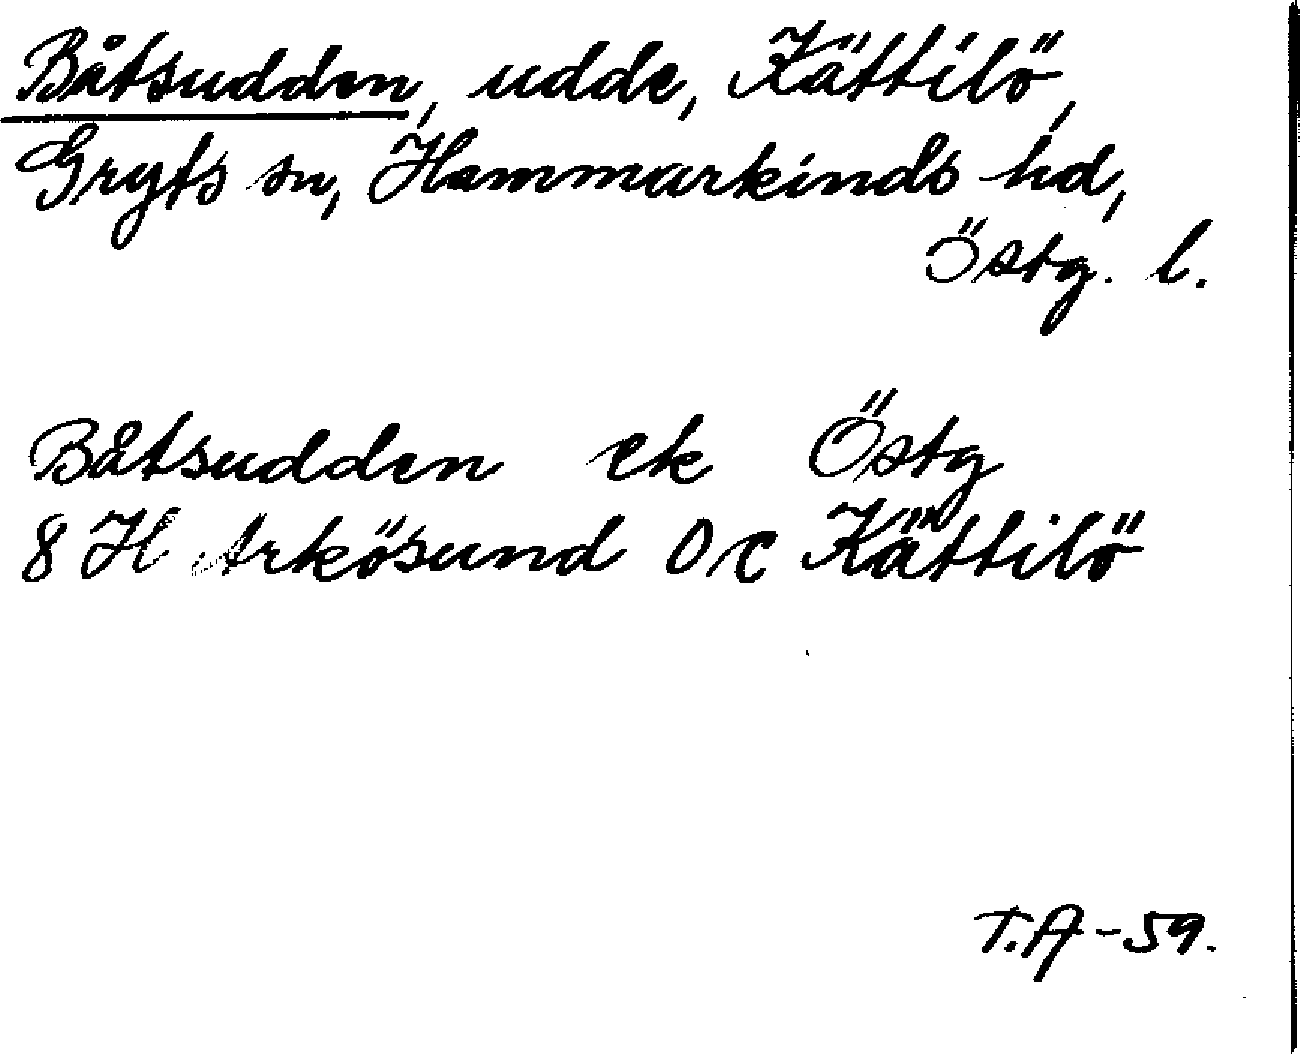 Båtsudden, udde, Kättilö,
Gryts sn, Hammarkinds hd,
Östg. l.
Båtsudden ek Östg
8 H Arkösund 0 c Kättilö
T.A-59.